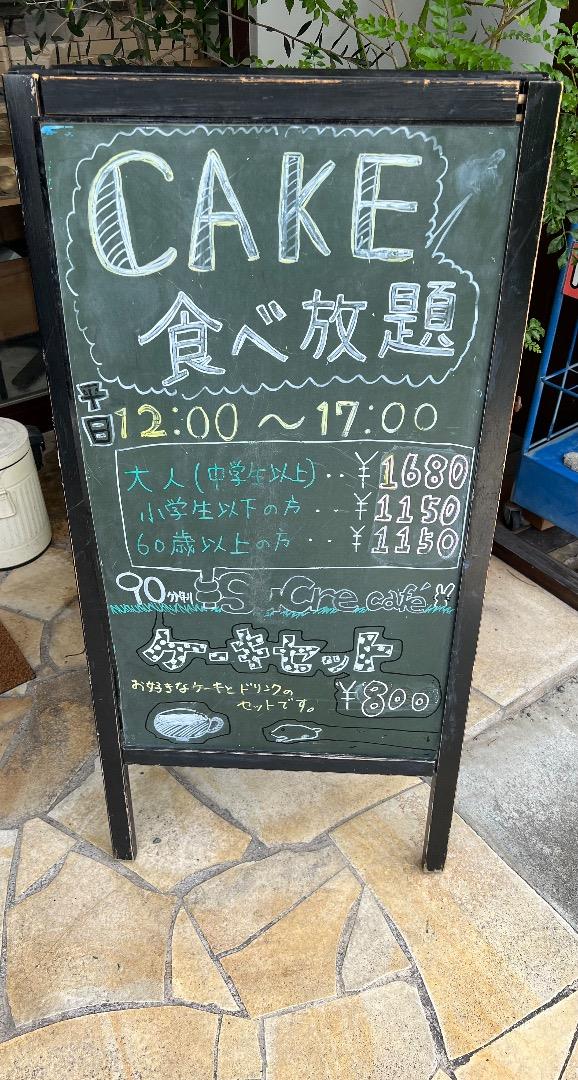 CAKE
食べ放題
平日 12:00 〜 17:00
大人(中学生以上)‥¥1680
小学生以下の方‥¥1150
60歳以上の方‥¥1150
90分制 Sucre café
ケーキセット
お好きなケーキとドリンクの
セットです。 ¥800